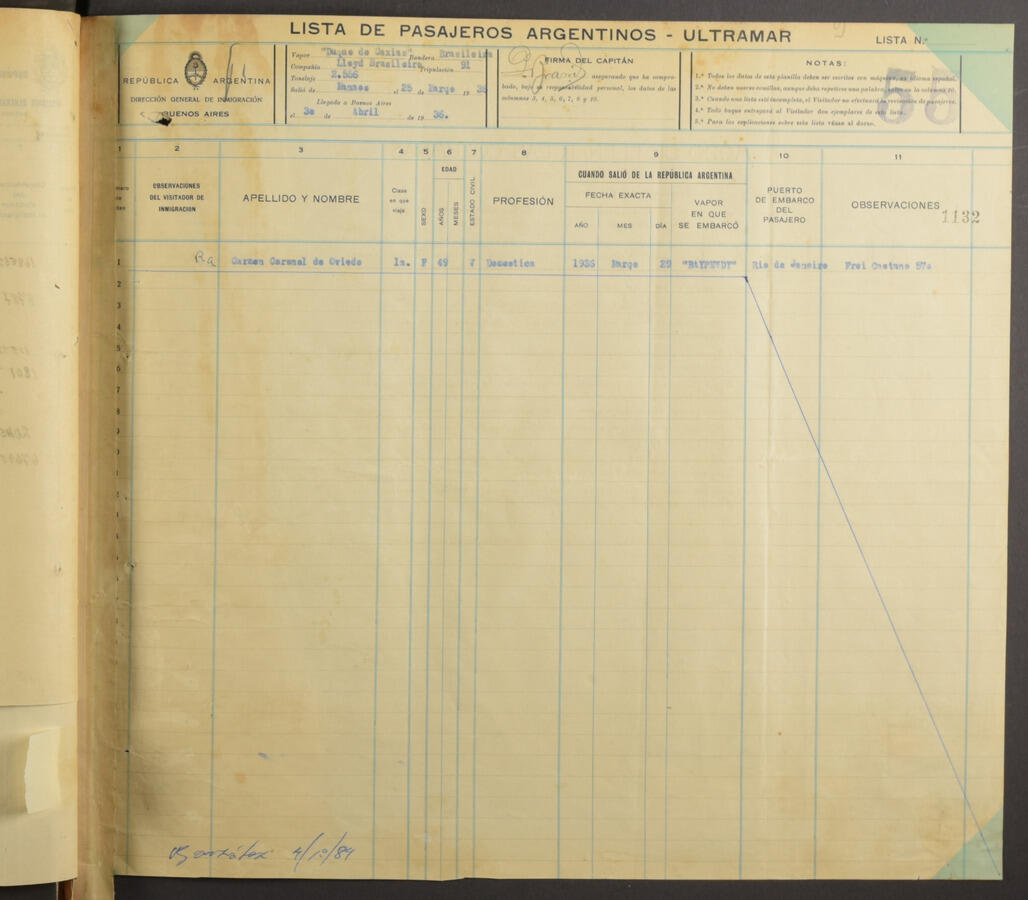 LISTA DE PASAJEROS ARGENTINOS - ULTRAMAR
LISTA N.º
REPÚBLICA ARGENTINA
DIRECCIÓN GENERAL DE INMIGRACIÓN
BUENOS AIRES
Vapor "Duque de Caxias" Bandera Brasileira
Compañía Lloyd Brasileiro Tripulación 91
Tonelaje 2.556
Salió de el 25 de Março 1936
Llegada a Buenos Aires
el 3o de Abril de 1936.
FIRMA DEL CAPITÁN
asegurando que ha comprobado, bajo su responsabilidad personal, los datos de las
columnas 3, 4, 5, 6, 7, 8 y 10.
NOTAS:
1.ª Todos los datos de esta planilla deben ser escritos con máquina, en idioma español.
2.ª No deben usarse comillas, aunque deba repetirse una palabra, salvo en la columna 10.
3.ª Cuando una lista esté incompleta, el Visitador no efectuará la revisación de pasajeros.
4.ª Todo buque entregará al Visitador dos ejemplares de esta lista.
5.ª Para las explicaciones sobre esta lista véase al dorso.
1 2 3 4 5 6 7 8 9 10 11
OBSERVACIONES DEL VISITADOR DE INMIGRACION
APELLIDO Y NOMBRE
Clase en que viaja
SEXO
EDAD
AÑOS
MESES
ESTADO CIVIL
PROFESIÓN
CUANDO SALIÓ DE LA REPÚBLICA ARGENTINA
FECHA EXACTA
AÑO MES DÍA
VAPOR EN QUE SE EMBARCÓ
PUERTO DE EMBARCO DEL PASAJERO
OBSERVACIONES
1132
1 Ra Carmen Caramal de Oviedo 1a. F 49 Domestica 1936 Março 29 "BAYPENDY" Rio de Janeiro Frei Caetano 57
2
3
4
5
6
7
8
9
4/10/84